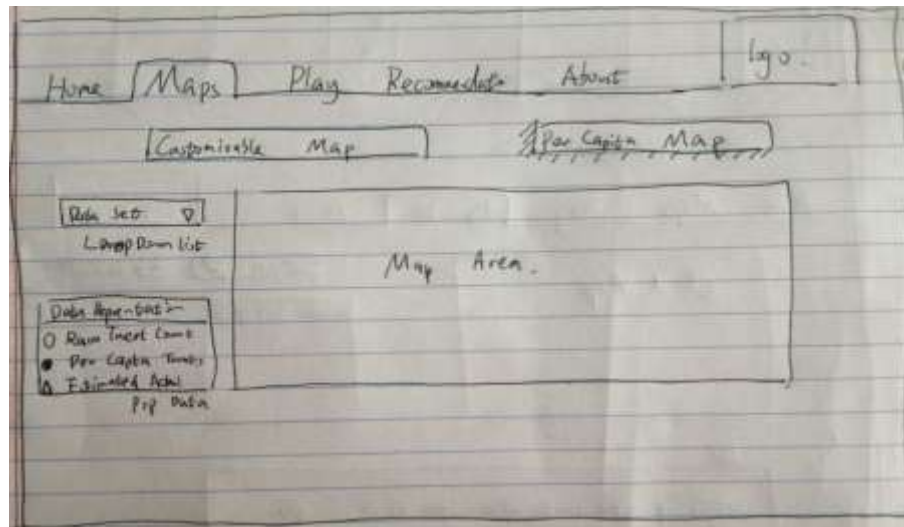 Home Maps Play About logo.
Customizable Map Per Capita Map
Data Set
Drop Down List
Map Area.
Data
Raw Tweet Count
Per Capita Tweets
Estimated
Pop Data